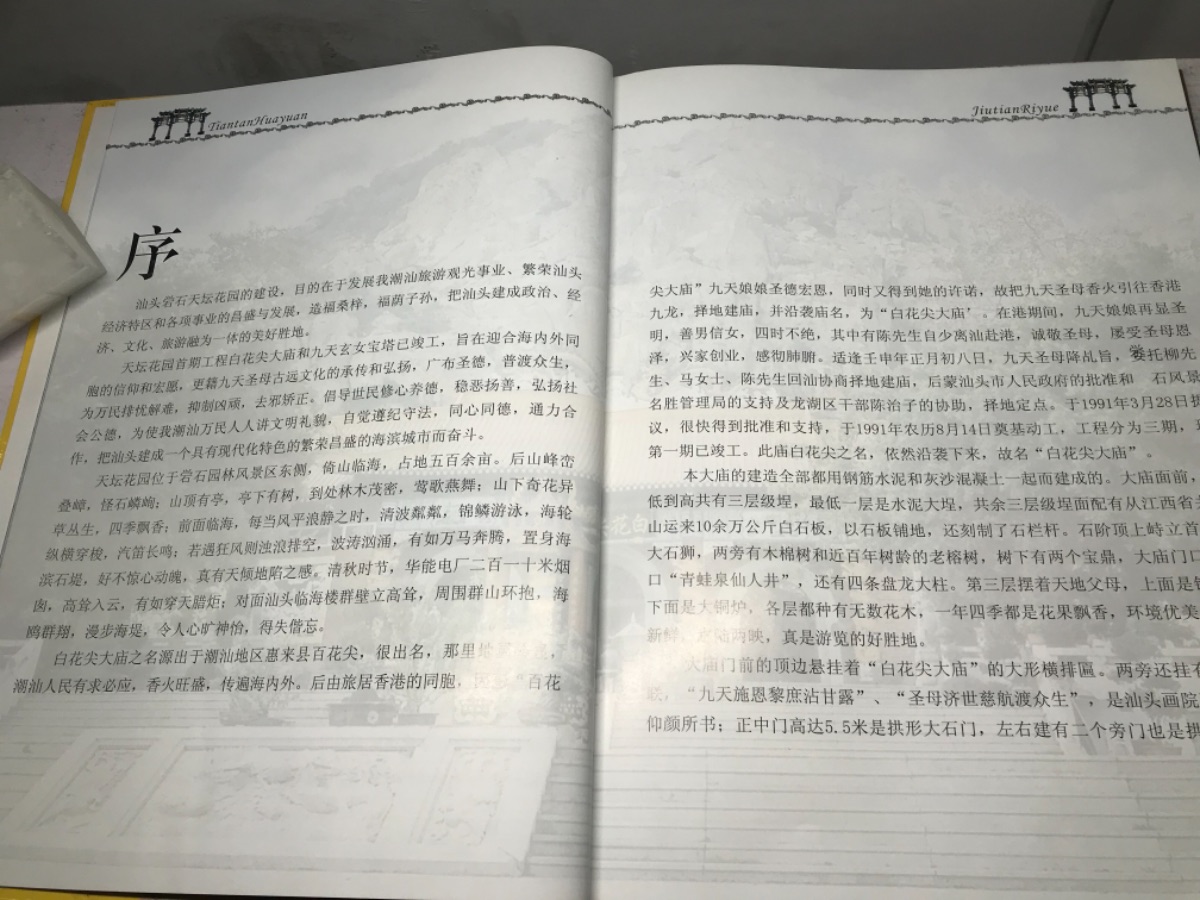 TiantanHuayuan
序
汕头礐石天坛花园的建设，目的在于发展我潮汕旅游观光事业、繁荣汕头
经济特区和各项事业的昌盛与发展，造福桑梓，福荫子孙，把汕头建成政治、经
济、文化、旅游融为一体的美好胜地。
天坛花园首期工程白花尖大庙和九天玄女宝塔已竣工，旨在迎合海内外同
胞的信仰和宏愿，更籍九天圣母古远文化的承传和弘扬，广布圣德，普渡众生，
为万民排忧解难，抑制凶顽，去邪矫正。倡导世民修心养德，稳恶扬善，弘扬社
会公德，为使我潮汕万民人人讲文明礼貌，自觉遵纪守法，同心同德，通力合
作，把汕头建成一个具有现代化特色的繁荣昌盛的海滨城市而奋斗。
天坛花园位于礐石园林风景区东侧，倚山临海，占地五百余亩。后山峰峦
叠嶂，怪石嶙峋；山顶有亭，亭下有树，到处林木茂密，莺歌燕舞；山下奇花异
草丛生，四季飘香；前面临海，每当风平浪静之时，清波粼粼，锦鳞游泳，海轮
纵横穿梭，汽笛长鸣；若遇狂风则浊浪排空，波涛汹涌，有如万马奔腾，置身海
滨石堤，好不惊心动魄，真有天倾地陷之感。清秋时节，华能电厂二百一十米烟
囱，高耸入云，有如穿天腊炬；对面汕头临海楼群壁立高耸，周围群山环抱，海
鸥群翔，漫步海堤，令人心旷神怡，得失偕忘。
白花尖大庙之名源出于潮汕地区惠来县百花尖，很出名，那里地
潮汕人民有求必应，香火旺盛，传遍海内外。后由旅居香港的同胞，“百花
JiutianRiyue
尖大庙”九天娘娘圣德宏恩，同时又得到她的许诺，故把九天圣母香火引往香港
九龙，择地建庙，并沿袭庙名，为“白花尖大庙’。在港期间，九天娘娘再显圣
明，善男信女，四时不绝，其中有陈先生自少离汕赴港，诚敬圣母，屡受圣母恩
泽，兴家创业，感彻肺腑。适逢壬申年正月初八日，九天圣母降乩旨，委托柳先
生、马女士、陈先生回汕协商择地建庙，后蒙汕头市人民政府的批准和 石风景
名胜管理局的支持及龙湖区干部陈治子的协助，择地定点。于1991年3月28日提
议，很快得到批准和支持，于1991年农历8月14日奠基动工，工程分为三期，现
第一期已竣工。此庙白花尖之名，依然沿袭下来，故名“白花尖大庙”。
本大庙的建造全部都用钢筋水泥和灰沙混凝土一起而建成的。大庙面前，
低到高共有三层级埕，最低一层是水泥大埕，共余三层级埕面配有从江西省
山运来10余万公斤白石板，以石板铺地，还刻制了石栏杆。石阶顶上峙立首
大石狮，两旁有木棉树和近百年树龄的老榕树，树下有两个宝鼎，大庙门口
口“青蛙泉仙人井”，还有四条盘龙大柱。第三层摆着天地父母，上面是
下面是大铜炉，各层都种有无数花木，一年四季都是花果飘香，环境优美
新鲜，陆两映，真是游览的好胜地。
大庙门前的顶边悬挂着“白花尖大庙”的大形横排匾。两旁还挂有
联，“九天施恩黎庶沾甘露”、“圣母济世慈航渡众生”，是汕头画院
仰颜所书；正中门高达5.5米是拱形大石门，左右建有二个旁门也是拱